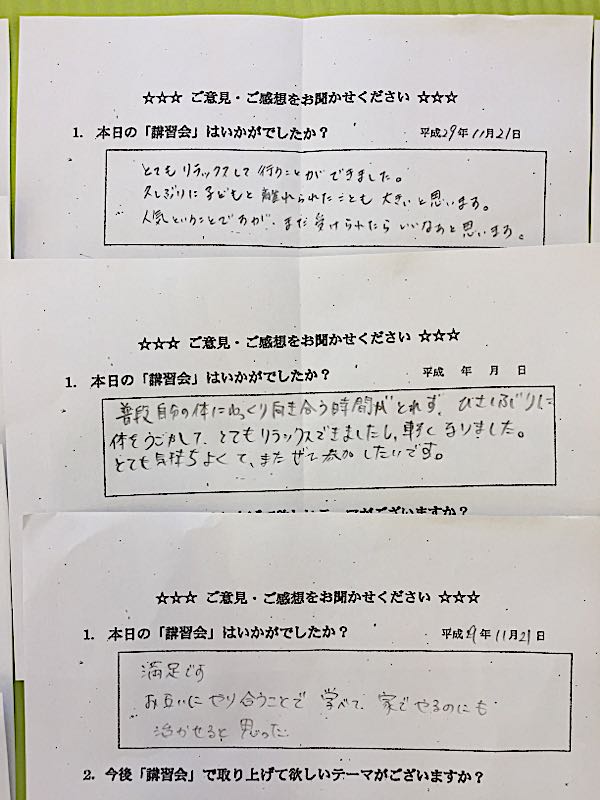 ☆☆☆ ご意見・ご感想をお聞かせください ☆☆☆
1. 本日の「講習会」はいかがでしたか？ 平成29年11月21日
とてもリラックスして行うことができました。
久しぶりに子どもと離れられたことも大きいと思います。
人気ということですが、また受けられたらいいなぁと思います。
☆☆☆ ご意見・ご感想をお聞かせください ☆☆☆
1. 本日の「講習会」はいかがでしたか？ 平成 年 月 日
普段自分の体にゆっくり向き合う時間がとれず、ひさしぶりに
体をうごかして、とてもリラックスできましたし、軽くなりました。
とても気持ちよくて、またぜひ参加したいです。
テーマがございますか？
☆☆☆ ご意見・ご感想をお聞かせください ☆☆☆
1. 本日の「講習会」はいかがでしたか？ 平成29年11月21日
満足です
お互いにやり合うことで 学べて、家でやるのにも
活かせると思った
2. 今後「講習会」で取り上げて欲しいテーマがございますか？